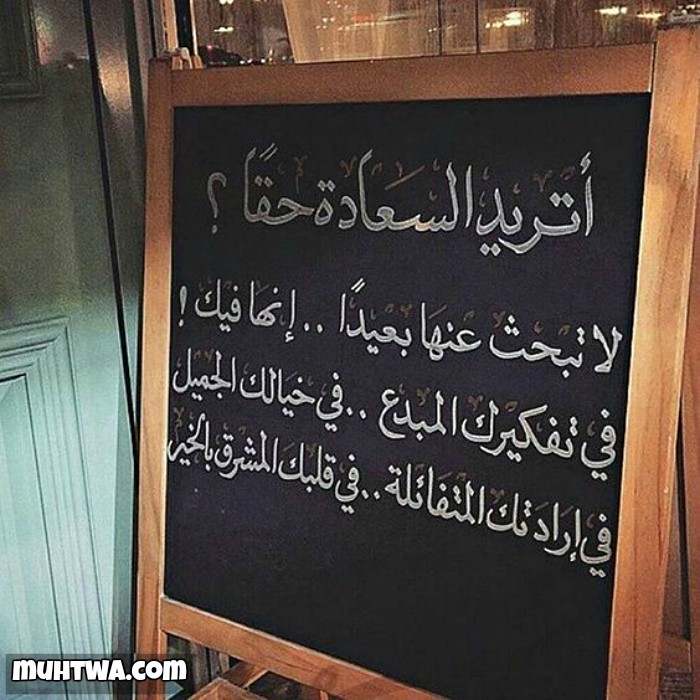 أتريد السعادة حقًا ؟
لا تبحث عنها بعيدًا .. إنها فيك !
في تفكيرك المبدع .. في خيالك الجميل
في إرادتك المتفائلة .. في قلبك المشرق بالخير
MUHTWA.COM